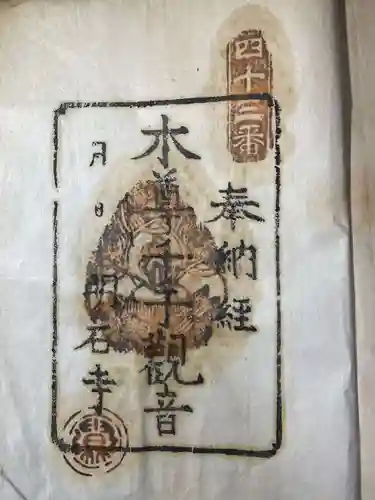 四十三番
奉納經
本尊千手觀音
月 日
明石寺